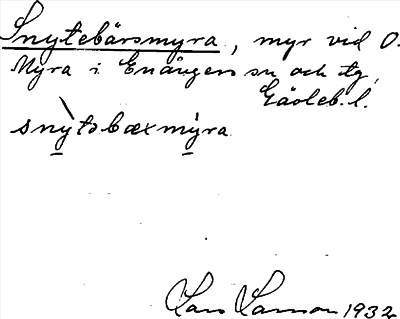 Snytebärsmyra, myr vid O.
Myra i Enångers sn och tg,
Gävleb. l.
snỳtəbæxmy̍ra
Lars Larsson 1932